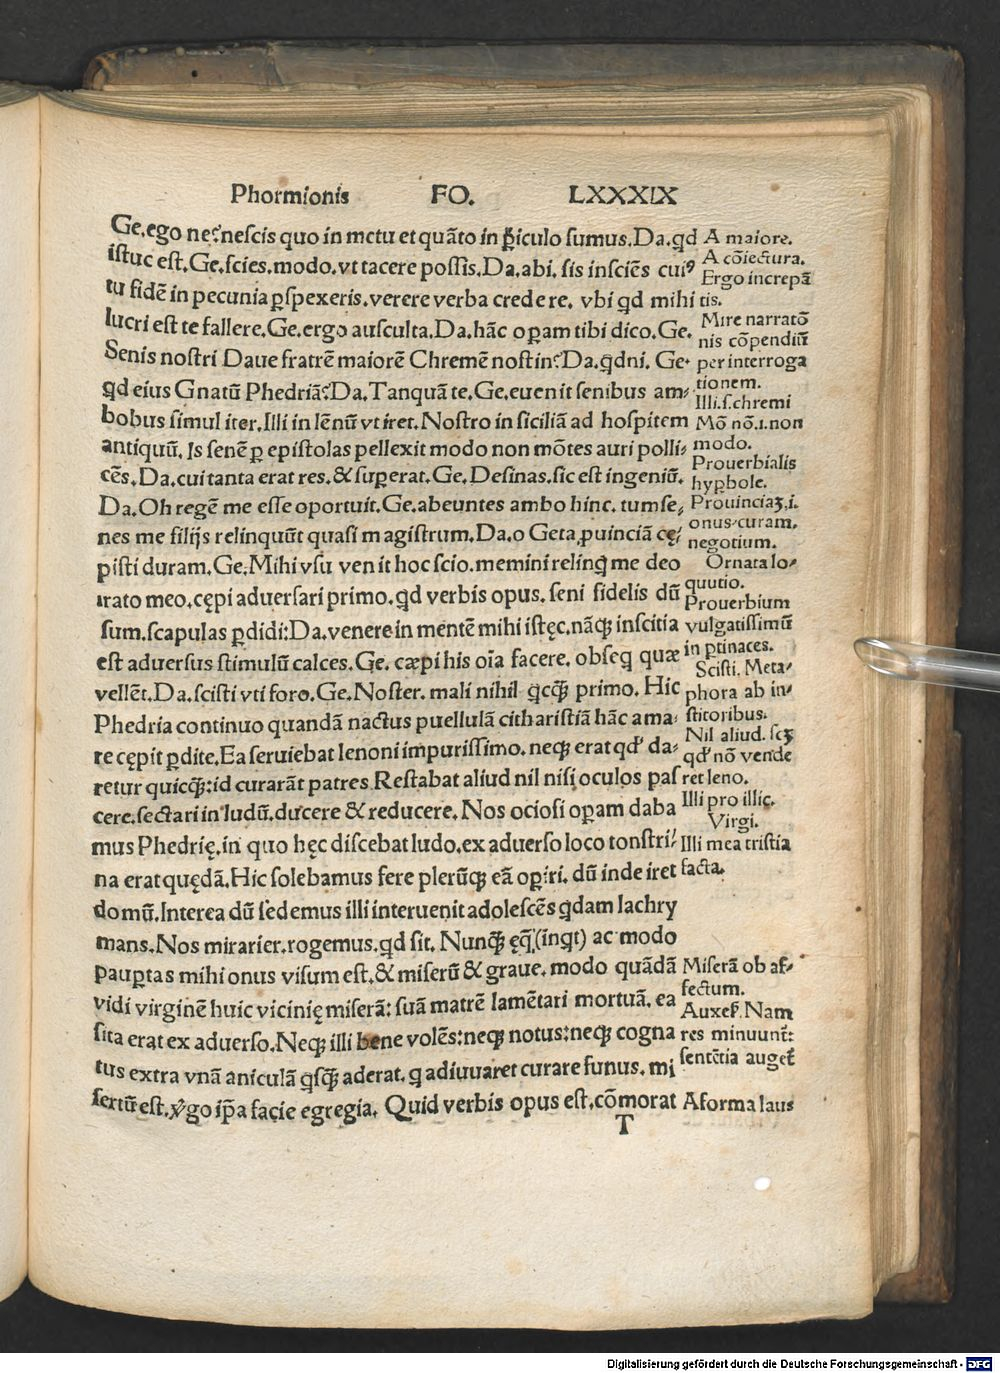 Phormionis FO. LXXXIX
Ge.ego ne? nescis quo in metu et quãto in ꝑiculo sumus.Da.qd
istuc est.Ge.scies.modo.vt tacere possis.Da.abi. sis insciẽs cuiꝰ
tu fidẽ in pecunia ꝑspexeris.verere verba credere. vbi qd mihi
lucri est te fallere.Ge.ergo ausculta.Da.hãc oꝑam tibi dico.Ge.
Senis nostri Daue fratrẽ maiorẽ Chremẽ nostin?Da.qdni. Ge.
qd eius Gnatũ Phedriã?Da.Tanquã te.Ge.euenit senibus am⸗
bobus simul iter.Illi in lẽnũ vt iret.Nostro in siciliã ad hospitem
antiquũ. Is senẽ ꝑ epistolas pellexit modo non mõtes auri polli⸗
cẽs.Da.cui tanta erat res.& suꝑerat.Ge.Desinas.sic est ingeniũ.
Da.Oh regẽ me esse oportuit.Ge.abeuntes ambo hinc. tum se⸗
nes me filijs relinquũt quasi magistrum.Da.o Geta ꝓuinciã cę⸗
pisti duram.Ge.Mihi vsu venit hoc scio.memini relinq̃ me deo
irato meo.cępi aduersari primo.qd verbis opus. seni fidelis dũ
sum.scapulas ꝑdidi:Da.venere in mentẽ mihi istęc.nãqꝫ inscitia
est aduersus stimulũ calces.Ge. cæpi his oĩa facere. obseq quæ
vellẽt.Da.scisti vti foro.Ge.Noster. mali nihil qcqꝫ primo. Hic
Phedria continuo quandã nactus puellulã citharistiã hãc ama⸗
re cępit ꝑdite.Ea seruiebat lenoni impurissimo. neqꝫ erat qd' da⸗
retur quicqꝫ:id curarãt patres.Restabat aliud nil nisi oculos pas
cere.sectari in ludũ.ducere & reducere. Nos ociosi oꝑam daba
mus Phedrię.in quo hęc discebat ludo.ex aduerso loco tonstri⸗
na erat quędã.Hic solebamus fere plerũqꝫ eã oꝑiri. dũ inde iret
domũ.Interea dũ sedemus illi interuenit adolescẽs qdam lachry
mans.Nos mirarier.rogemus.qd sit. Nunqꝫ ęq̃(inqt) ac modo
pauꝑtas mihi onus visum est.& miserũ & graue. modo quãdã
vidi virginẽ huic vicinię miserã: suã matrẽ lamẽtari mortuã. ea
sita erat ex aduerso.Neqꝫ illi bene volẽs:neqꝫ notus:neqꝫ cogna
tus extra vnã aniculã qsqꝫ aderat. q adiuuaret curare funus. mi
sertũ est. ꝟgo ip̃a facie egregia. Quid verbis opus est.cõmorat
T
A maiore.
A cõiectura.
Ergo increpã
tis.
Mire narratõ
nis cõpendiũ
per interroga
tionem.
Illi.s.chremi
Mõ nõ.i.non
modo.
Prouerbialis
hyꝑbole.
Prouinciaꝫ.i.
onus⸗curam.
negotium.
Ornata lo⸗
quutio.
Prouerbium
vulgatissimũ
in ꝑtinaces.
Scisti. Meta⸗
phora ab in⸗
stitoribus.
Nil aliud. scꝫ
qd' nõ vende
ret leno.
Illi pro illic.
Virgi.
Illi mea tristia
facta.
Miserã ob af⸗
fectum.
Auxet. Nam
res minuunt:
sentẽtia auget
A forma laus
Digitalisierung gefördert durch die Deutsche Forschungsgemeinschaft - DFG